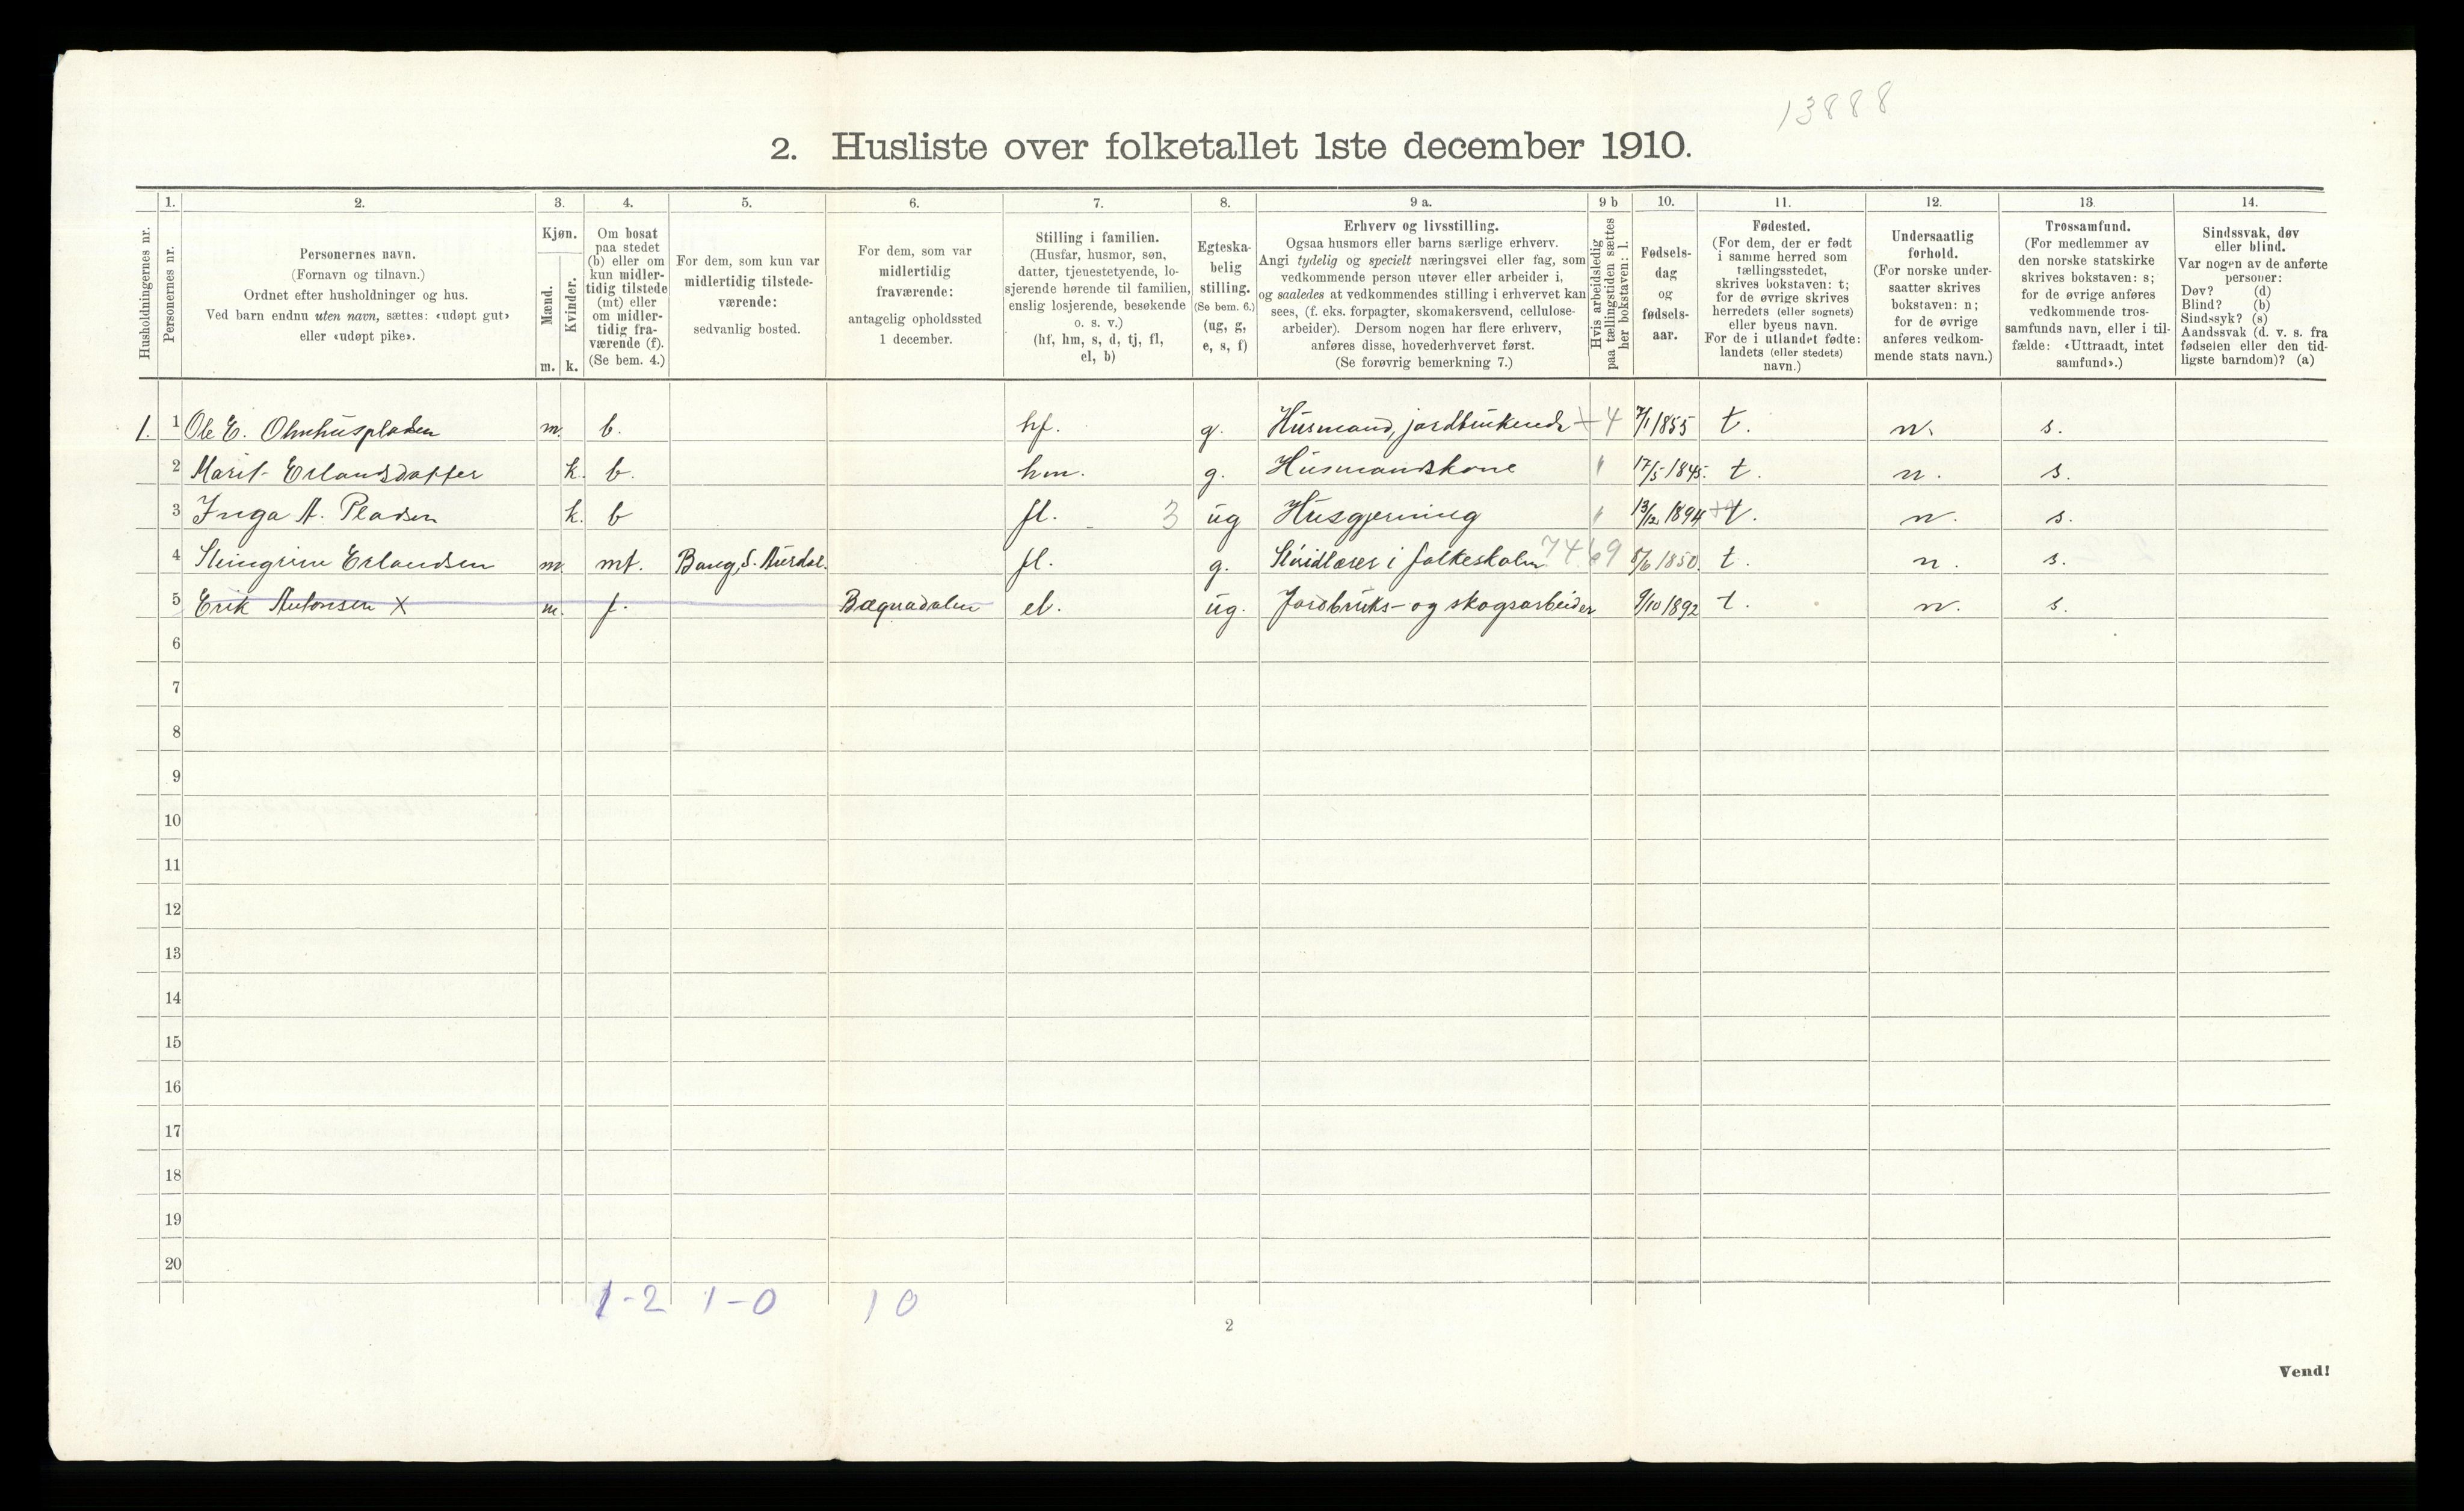 13888
2. Husliste over folketallet 1ste december 1910.
Husholdningernes nr.
1.
Personernes nr.
2.
Personernes navn.
(Fornavn og tilnavn.)
Ordnet efter husholdninger og hus.
Ved barn endnu uten navn, sættes: «udøpt gut»
eller «udøpt pike».
3.
Kjøn.
Mænd.
Kvinder.
m. k.
4.
Om bosat
paa stedet
(b) eller om
kun midler-
tidig tilstede
(mt) eller
om midler-
tidig fra-
værende (f).
(Se bem. 4.)
5.
For dem, som kun var
midlertidig tilstede-
værende:
sedvanlig bosted.
6.
For dem, som var
midlertidig
fraværende:
antagelig opholdssted
1 december.
7.
Stilling i familien.
(Husfar, husmor, søn,
datter, tjenestetyende, lo-
sjerende hørende til familien,
enslig losjerende, besøkende
o. s. v.)
(hf, hm, s, d, tj, fl,
el, b)
8.
Egteska-
belig
stilling.
(Se bem. 6.)
(ug, g,
e, s, f)
9 a.
Erhverv og livsstilling.
Ogsaa husmors eller barns særlige erhverv.
Angi tydelig og specielt næringsvei eller fag, som
vedkommende person utøver eller arbeider i,
og saaledes at vedkommendes stilling i erhvervet kan
sees, (f. eks. forpagter, skomakersvend, cellulose-
arbeider). Dersom nogen har flere erhverv,
anføres disse, hovederhvervet først.
(Se forøvrig bemerkning 7.)
9 b
Hvis arbeidsledig
paa tællingstiden sættes
her bokstaven: l.
10.
Fødsels-
dag
og
fødsels-
aar.
11.
Fødested.
(For dem, der er født
i samme herred som
tællingsstedet,
skrives bokstaven: t;
for de øvrige skrives
herredets (eller sognets)
eller byens navn.
For de i utlandet fødte:
landets (eller stedets)
navn.)
12.
Undersaatlig
forhold.
(For norske under-
saatter skrives
bokstaven: n;
for de øvrige
anføres vedkom-
mende stats navn.)
13.
Trossamfund.
(For medlemmer av
den norske statskirke
skrives bokstaven: s;
for de øvrige anføres
vedkommende tros-
samfunds navn, eller i til-
fælde: «Uttraadt, intet
samfund».)
14.
Sindssvak, døv
eller blind.
Var nogen av de anførte
personer:
Døv? (d)
Blind? (b)
Sindssyk? (s)
Aandssvak (d. v. s. fra
fødselen eller den tid-
ligste barndom)? (a)
1. 1 Ole E. Olmhuspladsen m. b. hf. g. Husmand, jordbrukende + 4 7/1 1855 t. n. s.
2 Marit Erlandsdatter k. b. hm. g. Husmandskone 17/5 1845. t. n. s.
3 Inga A. Pladsen k. b fl. 3 ug Husgjerning 13/12 1894 t. n. s.
4 Steingrim Erlandsen m. mt. Bang, S. Aurdal. fl. g. Sløidlærer i folkeskolen 7469 8/6 1850. t. n. s.
5 Erik Antonsen X m. f. Bægnadalen el. ug. Jordbruks- og skogsarbeider 9/10 1892 t. n. s.
6
7
8
9
10
11
12
13
14
15
16
17
18
19
20
1-2 1-0 10
2
Vend!